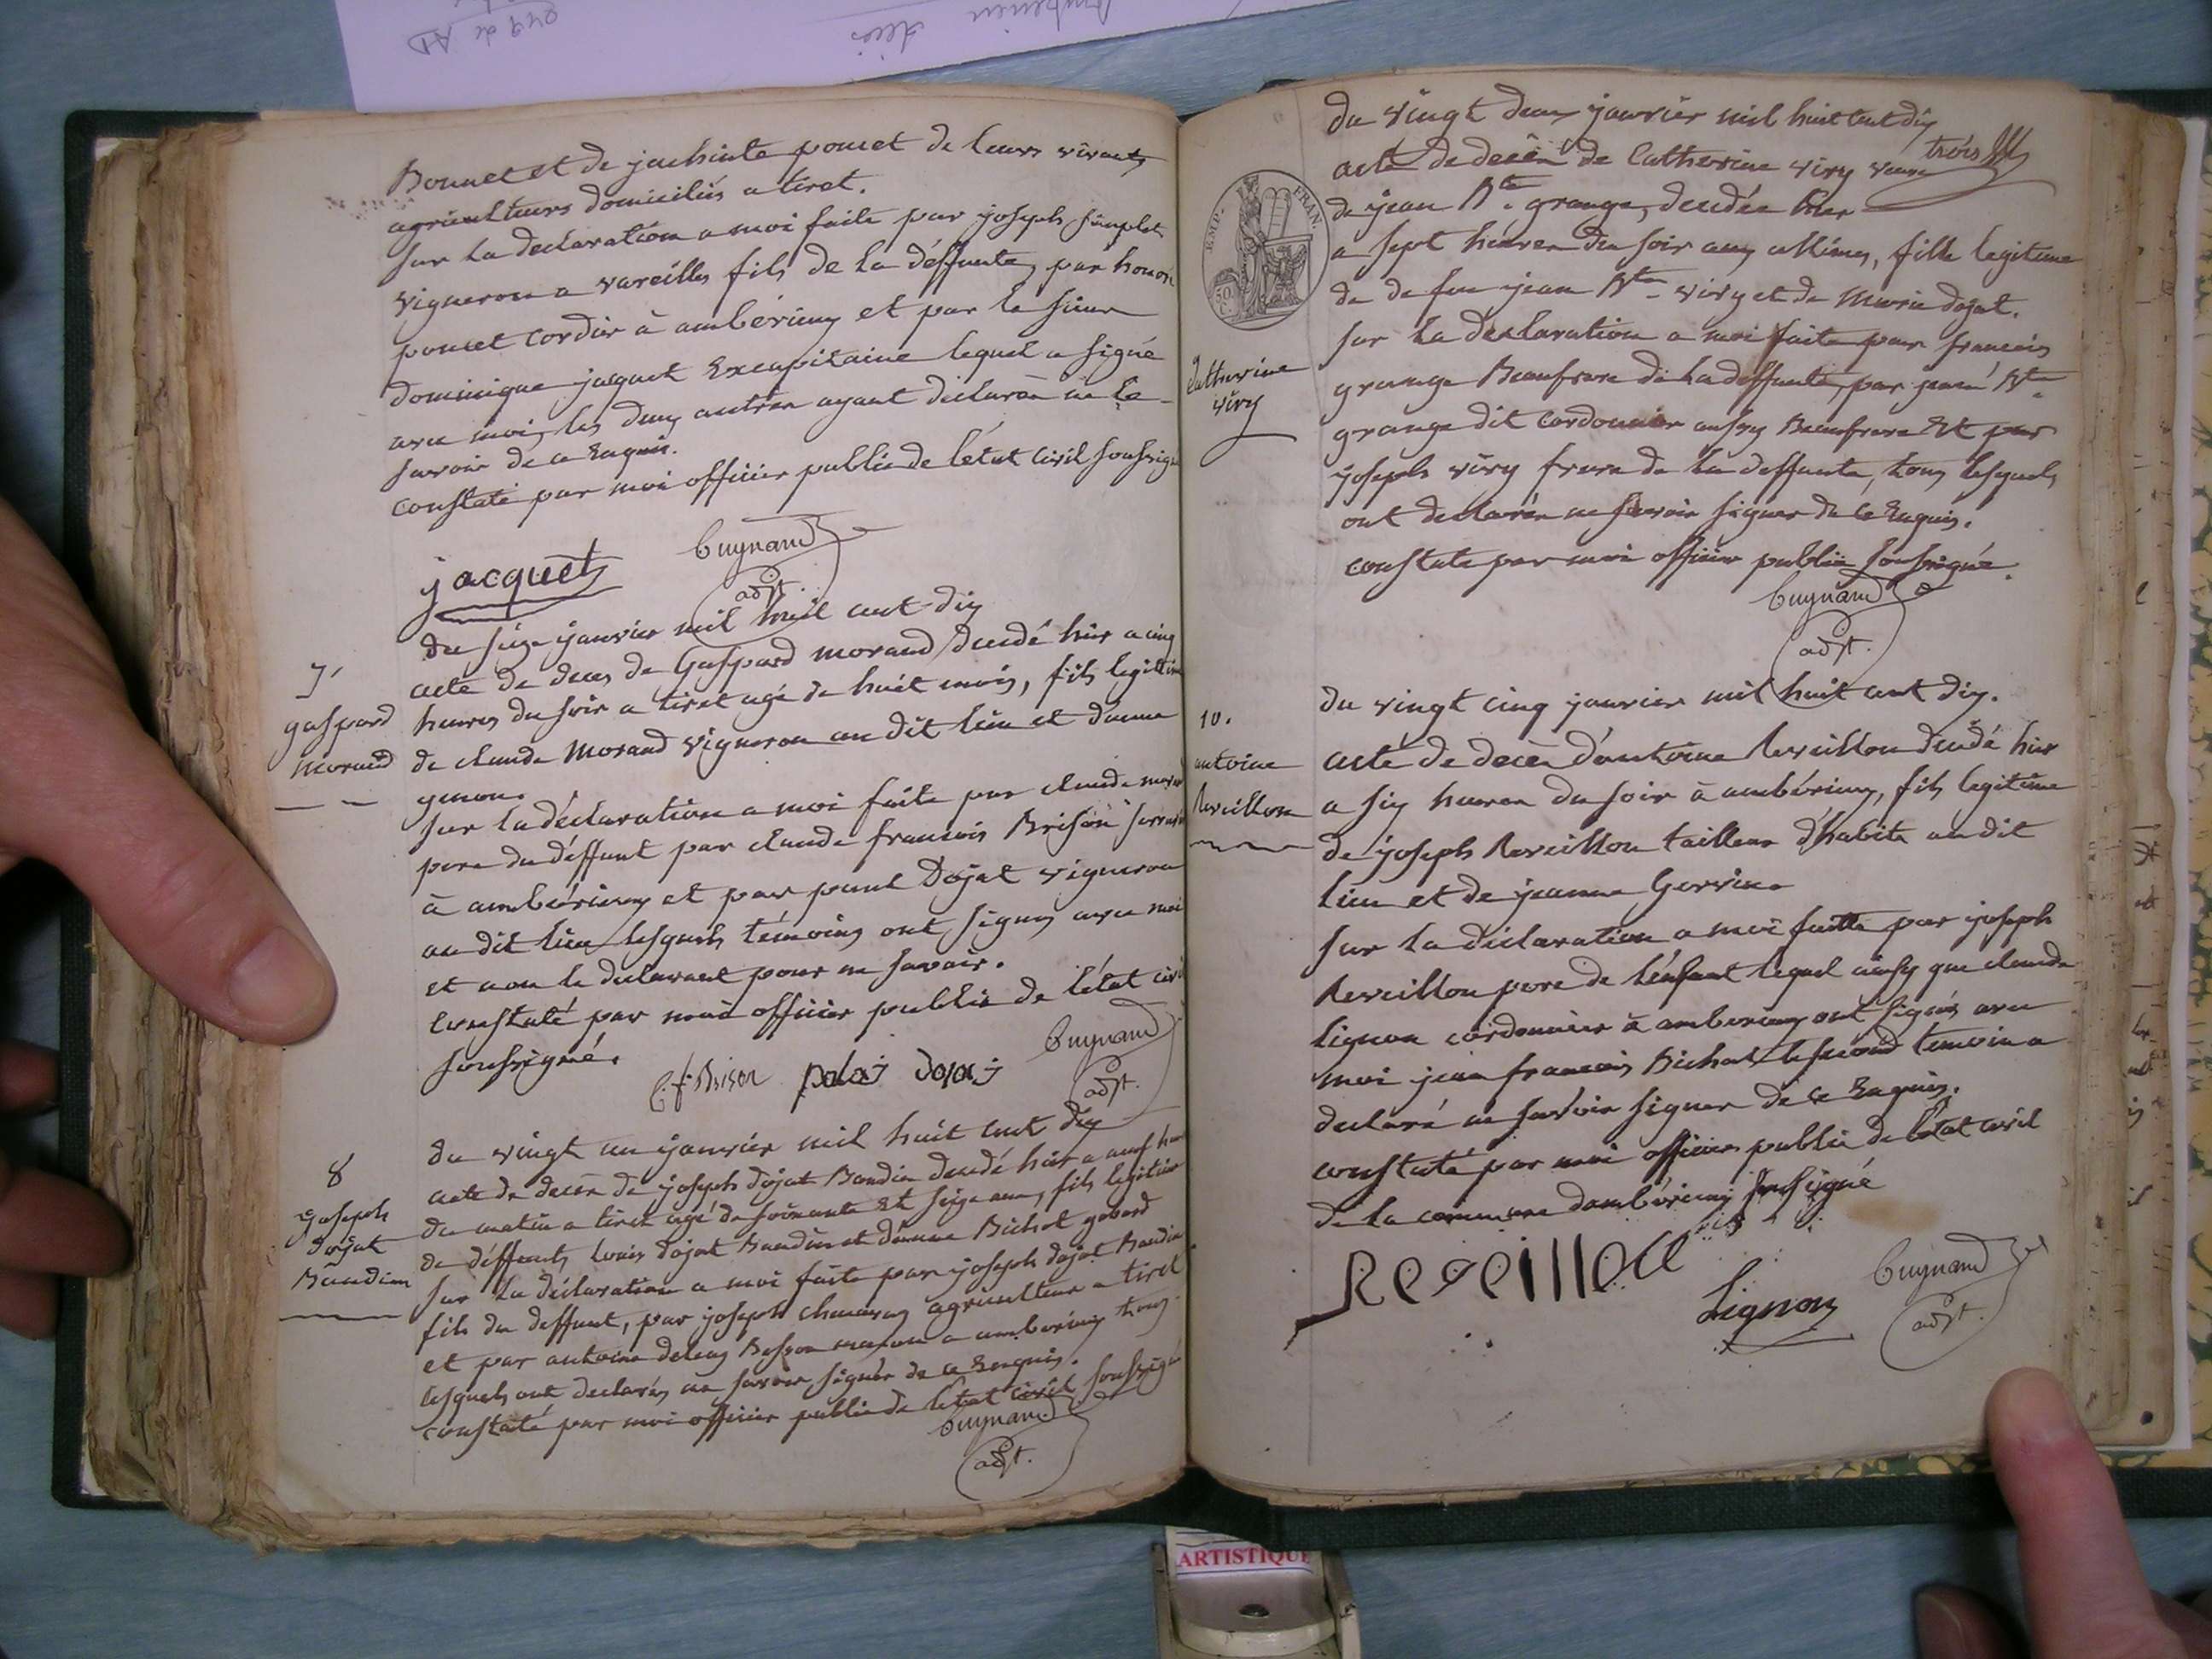 Bonnet et de jachinte poncet de leurs vivants
agriculteurs domiciliés a tiret.
sur la declaration a moi faite par joseph simplet
vigneron a vareilles fils de la deffunte, par honoré
poncet cordier à ambérieux et par le sieur
dominique jacquet Excapitaine lequel a signé
avec moi, les deux autres ayant déclarés ne le
savoir de ce Enquis.
constaté par moi officier public de l'état civil soussigné
jacquet
Cuynand
adjt.
7
gaspard
morand
du seize janvier mil huit cent dix
acte de deces de Gaspard morand decedé hier a cinq
heures du soir a tiret agé de huit mois, fils legitime
de claude Morand vigneron au dit lieu et d'anne
sur la déclaration a moi faite par claude
pere du déffunt par claude francois Brison
à ambérieux et par paul Dojat vigneron
au dit lieu lesquels témoins ont signés avec moi
et non le declarant pour ne savoir.
constaté par moi officier public de l'état civil
soussigné.
C. f. Brison
Cuynand
adjt.
8
joseph
dojat
Baudin
du vingt un janvier mil huit cent dix
acte de decès de joseph dojat Baudin decedé hier a neuf
du matin a tiret agé de soixante et seize ans, fils legitime
de deffunts louis dojat Baudin et d'anne Bichat
sur la déclaration a moi faite par joseph dojat Baudin
fils du deffunt, par joseph agriculteur a tiret
et par antoine maçon a amberieux tous
lesquels ont declarés ne savoir signer de ce Enquis.
constaté par moi officier public de l'état civil soussigné
Cuynand
adjt.
du vingt deux janvier mil huit cent dix
trois
acte de decès de Catherine viry veuve
de jean Bte. grange, decedée hier
EMP. FRAN.
50 C.
a sept heures du soir aux allimes, fille legitime
de de feu jean Bte. viry et de Marie dojat.
Catherine
viry
sur la declaration a moi faite par francois
grange Beaufrere de la deffunte, par jean Bte.
grange dit cordonnier aussy Beaufrere Et par
joseph viry frere de la deffunte, tous lesquels
ont declarés ne savoir signer de ce Enquis.
constaté par moi officier public soussigné.
Cuynand
adjt.
10.
antoine
Reveillon
du vingt cinq janvier mil huit cent dix.
acte de decès d'antoine Reveillon decedé hier
a six heures du soir à ambérieux, fils legitime
de joseph Reveillon tailleur d'habits au dit
lieu et de jeanne
sur la déclaration a moi faitte par joseph
Reveillon pere de l'enfant lequel ainsy que claude
lignon cordonnier à amberieux ont signés avec
moi jean francois Bichat le second temoin a
declaré ne savoir signer de ce Enquis.
constaté par moi officier public de l'état civil
de la commune d'ambérieux soussigné
Reveillon
Lignon
Cuynand
adjt.
ARTISTIQUE